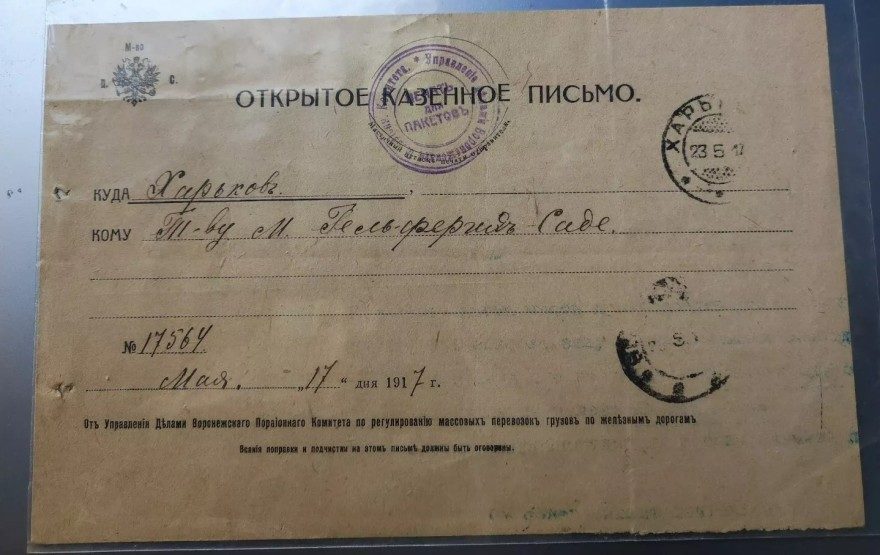 М-во
П. С.
ОТКРЫТОЕ КАЗЕННОЕ ПИСЬМО.
Управленіе
ПЕЧАТЬ
ДЛЯ
ПАКЕТОВЪ
ХАРЬ
23 5 17
КУДА Харьковъ.
КОМУ Т-ву М. Гельферихъ-Саде.
№ 17564
Мая. „17“ дня 1917 г.
Отъ Управленія Дѣлами Воронежскаго Пораіоннаго Комитета по регулированію массовыхъ перевозокъ грузовъ по желѣзнымъ дорогамъ
Всякія поправки и подчистки на этомъ письмѣ должны быть оговорены.